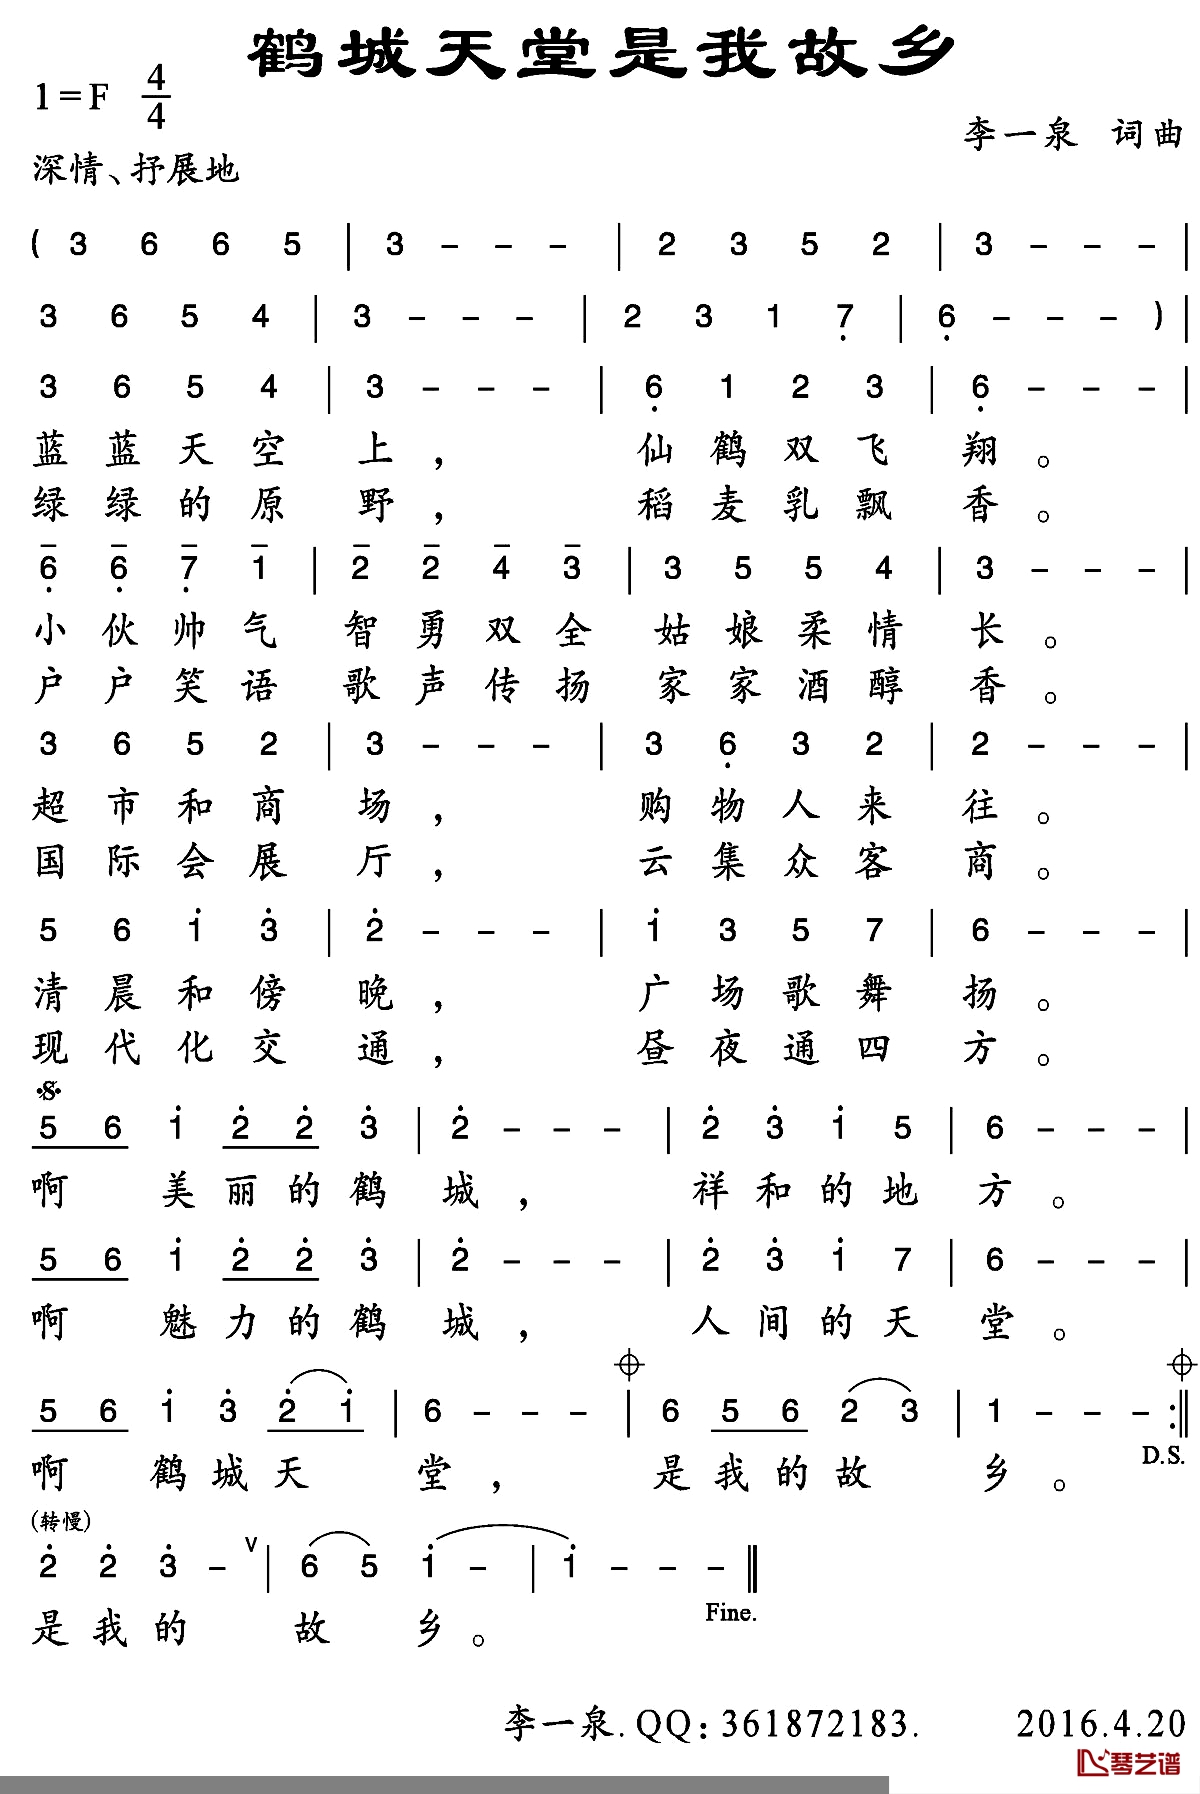 鹤城天堂是我故乡
1=F 4/4
李一泉 词曲
深情、抒展地
( 3 6 6 5 | 3 - - - | 2 3 5 2 | 3 - - - |
3 6 5 4 | 3 - - - | 2 3 1 7̣ | 6̣ - - - ) |
3 6 5 4 | 3 - - - | 6̣ 1 2 3 | 6̣ - - - |
蓝蓝天空上， 仙鹤双飞翔。
绿绿的原野， 稻麦乳飘香。
6̣̄ 6̣̄ 7̣̄ 1̄ | 2̄ 2̄ 4̄ 3̄ | 3 5 5 4 | 3 - - - |
小伙帅气 智勇双全 姑娘柔情长。
户户笑语 歌声传扬 家家酒醇香。
3 6 5 2 | 3 - - - | 3 6̣ 3 2 | 2 - - - |
超市和商场， 购物人来往。
国际会展厅， 云集众客商。
5 6 1̇ 3̇ | 2̇ - - - | 1̇ 3 5 7 | 6 - - - |
清晨和傍晚， 广场歌舞扬。
现代化交通， 昼夜通四方。
𝄋
5 6 1̇ 2̇ 2̇ 3̇ | 2̇ - - - | 2̇ 3̇ 1̇ 5 | 6 - - - |
啊 美丽的鹤城， 祥和的地方。
5 6 1̇ 2̇ 2̇ 3̇ | 2̇ - - - | 2̇ 3̇ 1̇ 7 | 6 - - - |
啊 魅力的鹤城， 人间的天堂。
𝄌 𝄌
5 6 1̇ 3̇ 2̇ 1̇ | 6 - - - | 6 5 6 2 3 | 1 - - - :‖
D.S.
啊 鹤城天堂， 是我的故乡。
(转慢)
2̇ 2̇ 3̇ - ∨ | 6 5 1̇ - | 1̇ - - - ‖
Fine.
是我的 故乡。
李一泉.QQ:361872183. 2016.4.20
琴艺谱